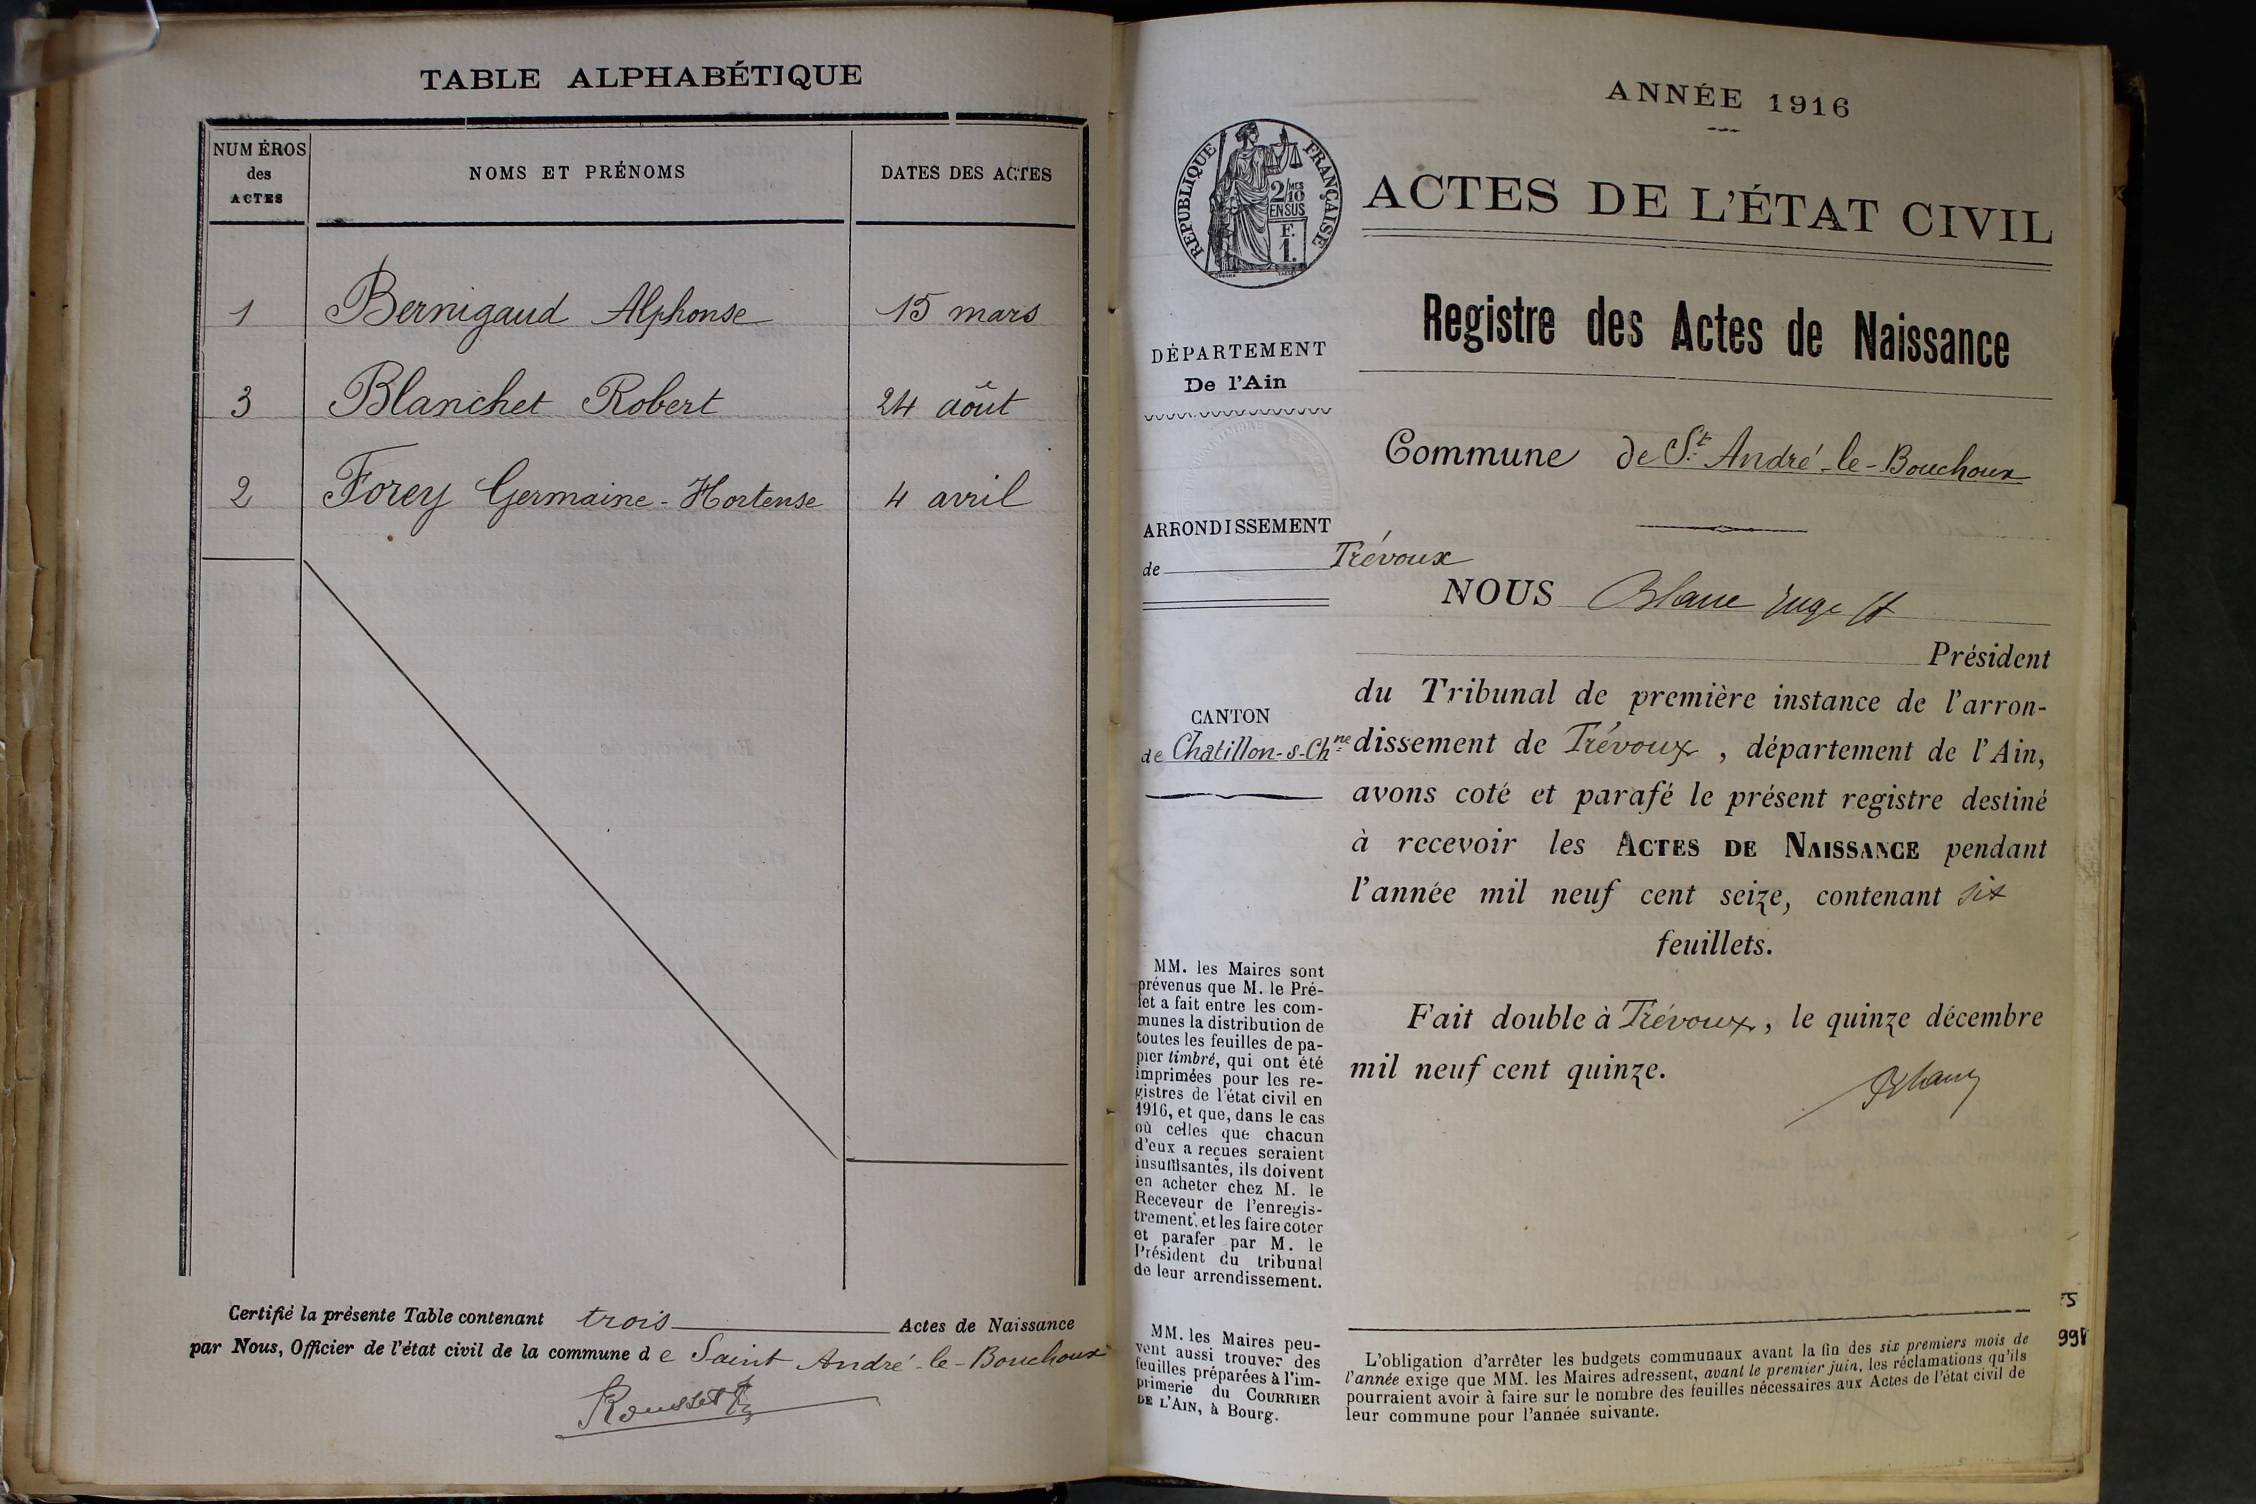 TABLE ALPHABÉTIQUE
NUMÉROS
des
ACTES
NOMS ET PRÉNOMS
DATES DES ACTES
1 Bernigaud Alphonse 15 mars
3 Blanchet Robert 24 août
2 Forey Germaine-Hortense 4 avril
Certifié la présente Table contenant trois Actes de Naissance
par Nous, Officier de l'état civil de la commune de Saint André-le-Bouchoux
Rousset
ANNÉE 1916
RÉPUBLIQUE FRANÇAISE
2/10MES
EN SUS
F.
1.
ACTES DE L'ÉTAT CIVIL
Registre des Actes de Naissance
DÉPARTEMENT
De l'Ain
Commune de St. André-le-Bouchoux
ARRONDISSEMENT
de Trévoux
NOUS Blanc juge
Président
du Tribunal de première instance de l'arron-
CANTON
de Châtillon-s-Chne
dissement de Trévoux, département de l'Ain,
avons coté et parafé le présent registre destiné
à recevoir les ACTES DE NAISSANCE pendant
l'année mil neuf cent seize, contenant six
feuillets.
Fait double à Trévoux, le quinze décembre
mil neuf cent quinze.
Blanc
MM. les Maires sont
prévenus que M. le Pré-
fet a fait entre les com-
munes la distribution de
toutes les feuilles de pa-
pier timbré, qui ont été
imprimées pour les re-
gistres de l'état civil en
1916, et que, dans le cas
où celles que chacun
d'eux a reçues seraient
insuffisantes, ils doivent
en acheter chez M. le
Receveur de l'enregis-
trement, et les faire coter
et parafer par M. le
Président du tribunal
de leur arrondissement.
MM. les Maires peu-
vent aussi trouver des
feuilles préparées à l'im-
primerie du COURRIER
DE L'AIN, à Bourg.
L'obligation d'arrêter les budgets communaux avant la fin des six premiers mois de
l'année exige que MM. les Maires adressent, avant le premier juin, les réclamations qu'ils
pourraient avoir à faire sur le nombre des feuilles nécessaires aux Actes de l'état civil de
leur commune pour l'année suivante.